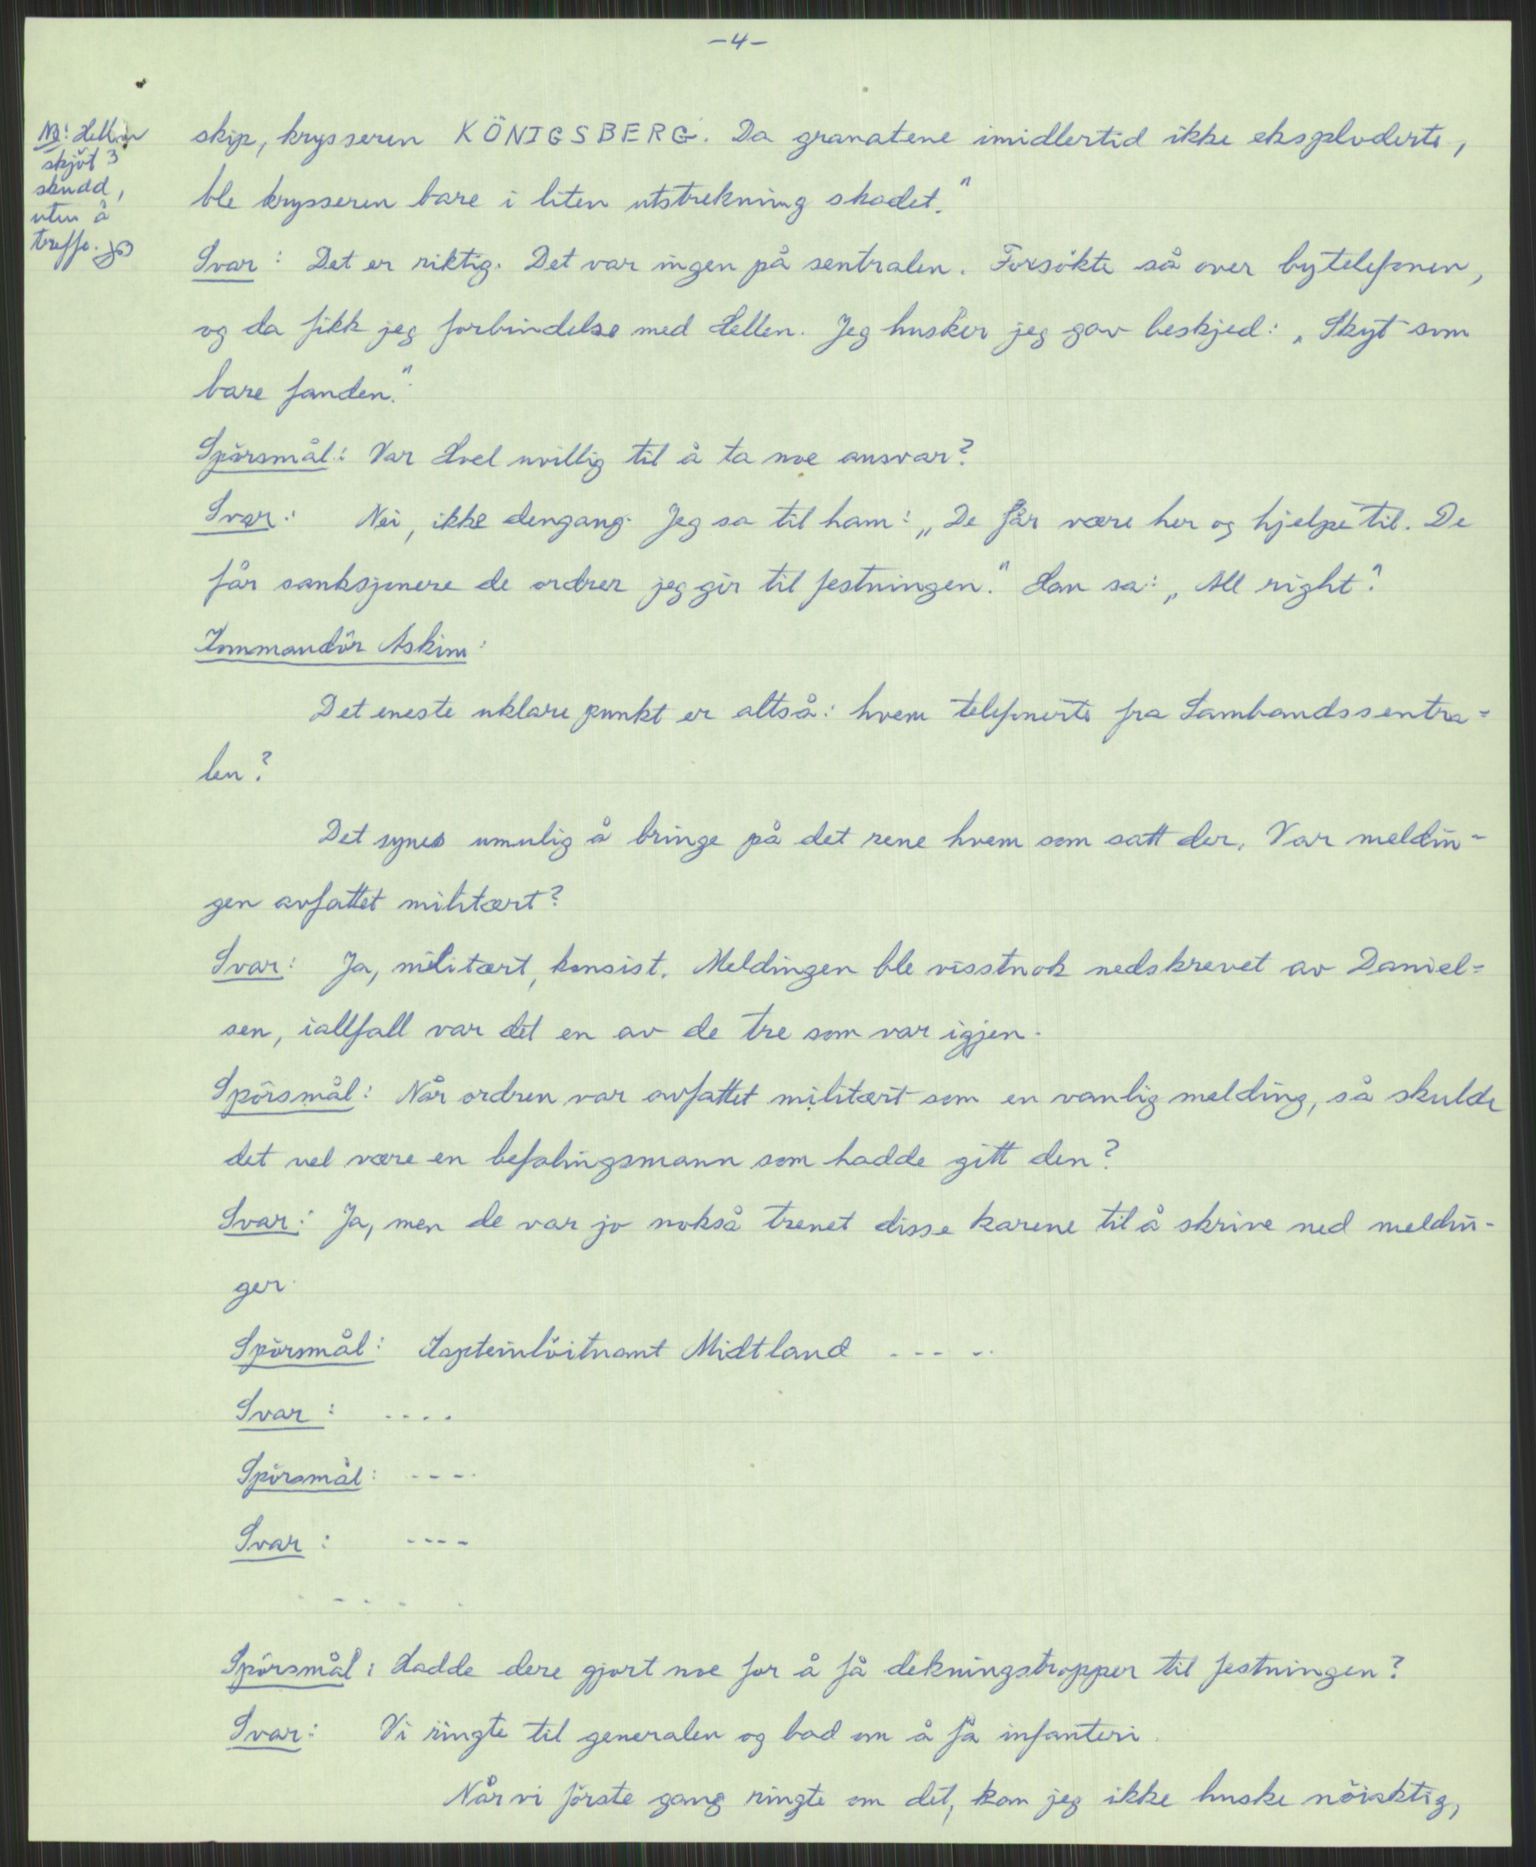 -4-
NB! Hellen
skjöt 3
skudd,
uten å
treffe.
skip, krysseren KÖNIGSBERG. Da granatene imidlertid ikke eksploderte,
ble krysseren bare i liten utstrekning skadet."
Svar: Det er riktig. Det var ingen på sentralen. Forsökte så over bytelefonen,
og da fikk jeg forbindelse med Hellen. Jeg husker jeg gav beskjed: „Skyt som
bare fanden."
Spörsmål: Var Hvel uvillig til å ta noe ansvar?
Svar: Nei, ikke dengang. Jeg sa til ham: „De får være her og hjelpe til. De
får sanksjonere de ordrer jeg gir til festningen." Han sa: „All right".
Kommandör Askim:
Det eneste uklare punkt er altså: hvem telefonerte fra Sambandssentra-
len?
Det synes umulig å bringe på det rene hvem som satt der. Var meldin-
gen avfattet militært?
Svar: Ja, militært, konsist. Meldingen ble visstnok nedskrevet av Daniel-
sen, iallfall var det en av de tre som var igjen.
Spörsmål: Når ordren var avfattet militært som en vanlig melding, så skulde
det vel være en befalingsmann som hadde gitt den?
Svar: Ja, men de var jo nokså trenet disse karene til å skrive ned meldin-
ger.
Spörsmål: Kapteinlöitnant Midtland - - - -
Svar: - - - -
Spörsmål: - - - -
Svar: - - - -
- - - -
Spörsmål: Hadde dere gjort noe for å få dekningstropper til festningen?
Svar: Vi ringte til generalen og bad om å få infanteri.
Når vi förste gang ringte om det, kan jeg ikke huske nöiaktig,